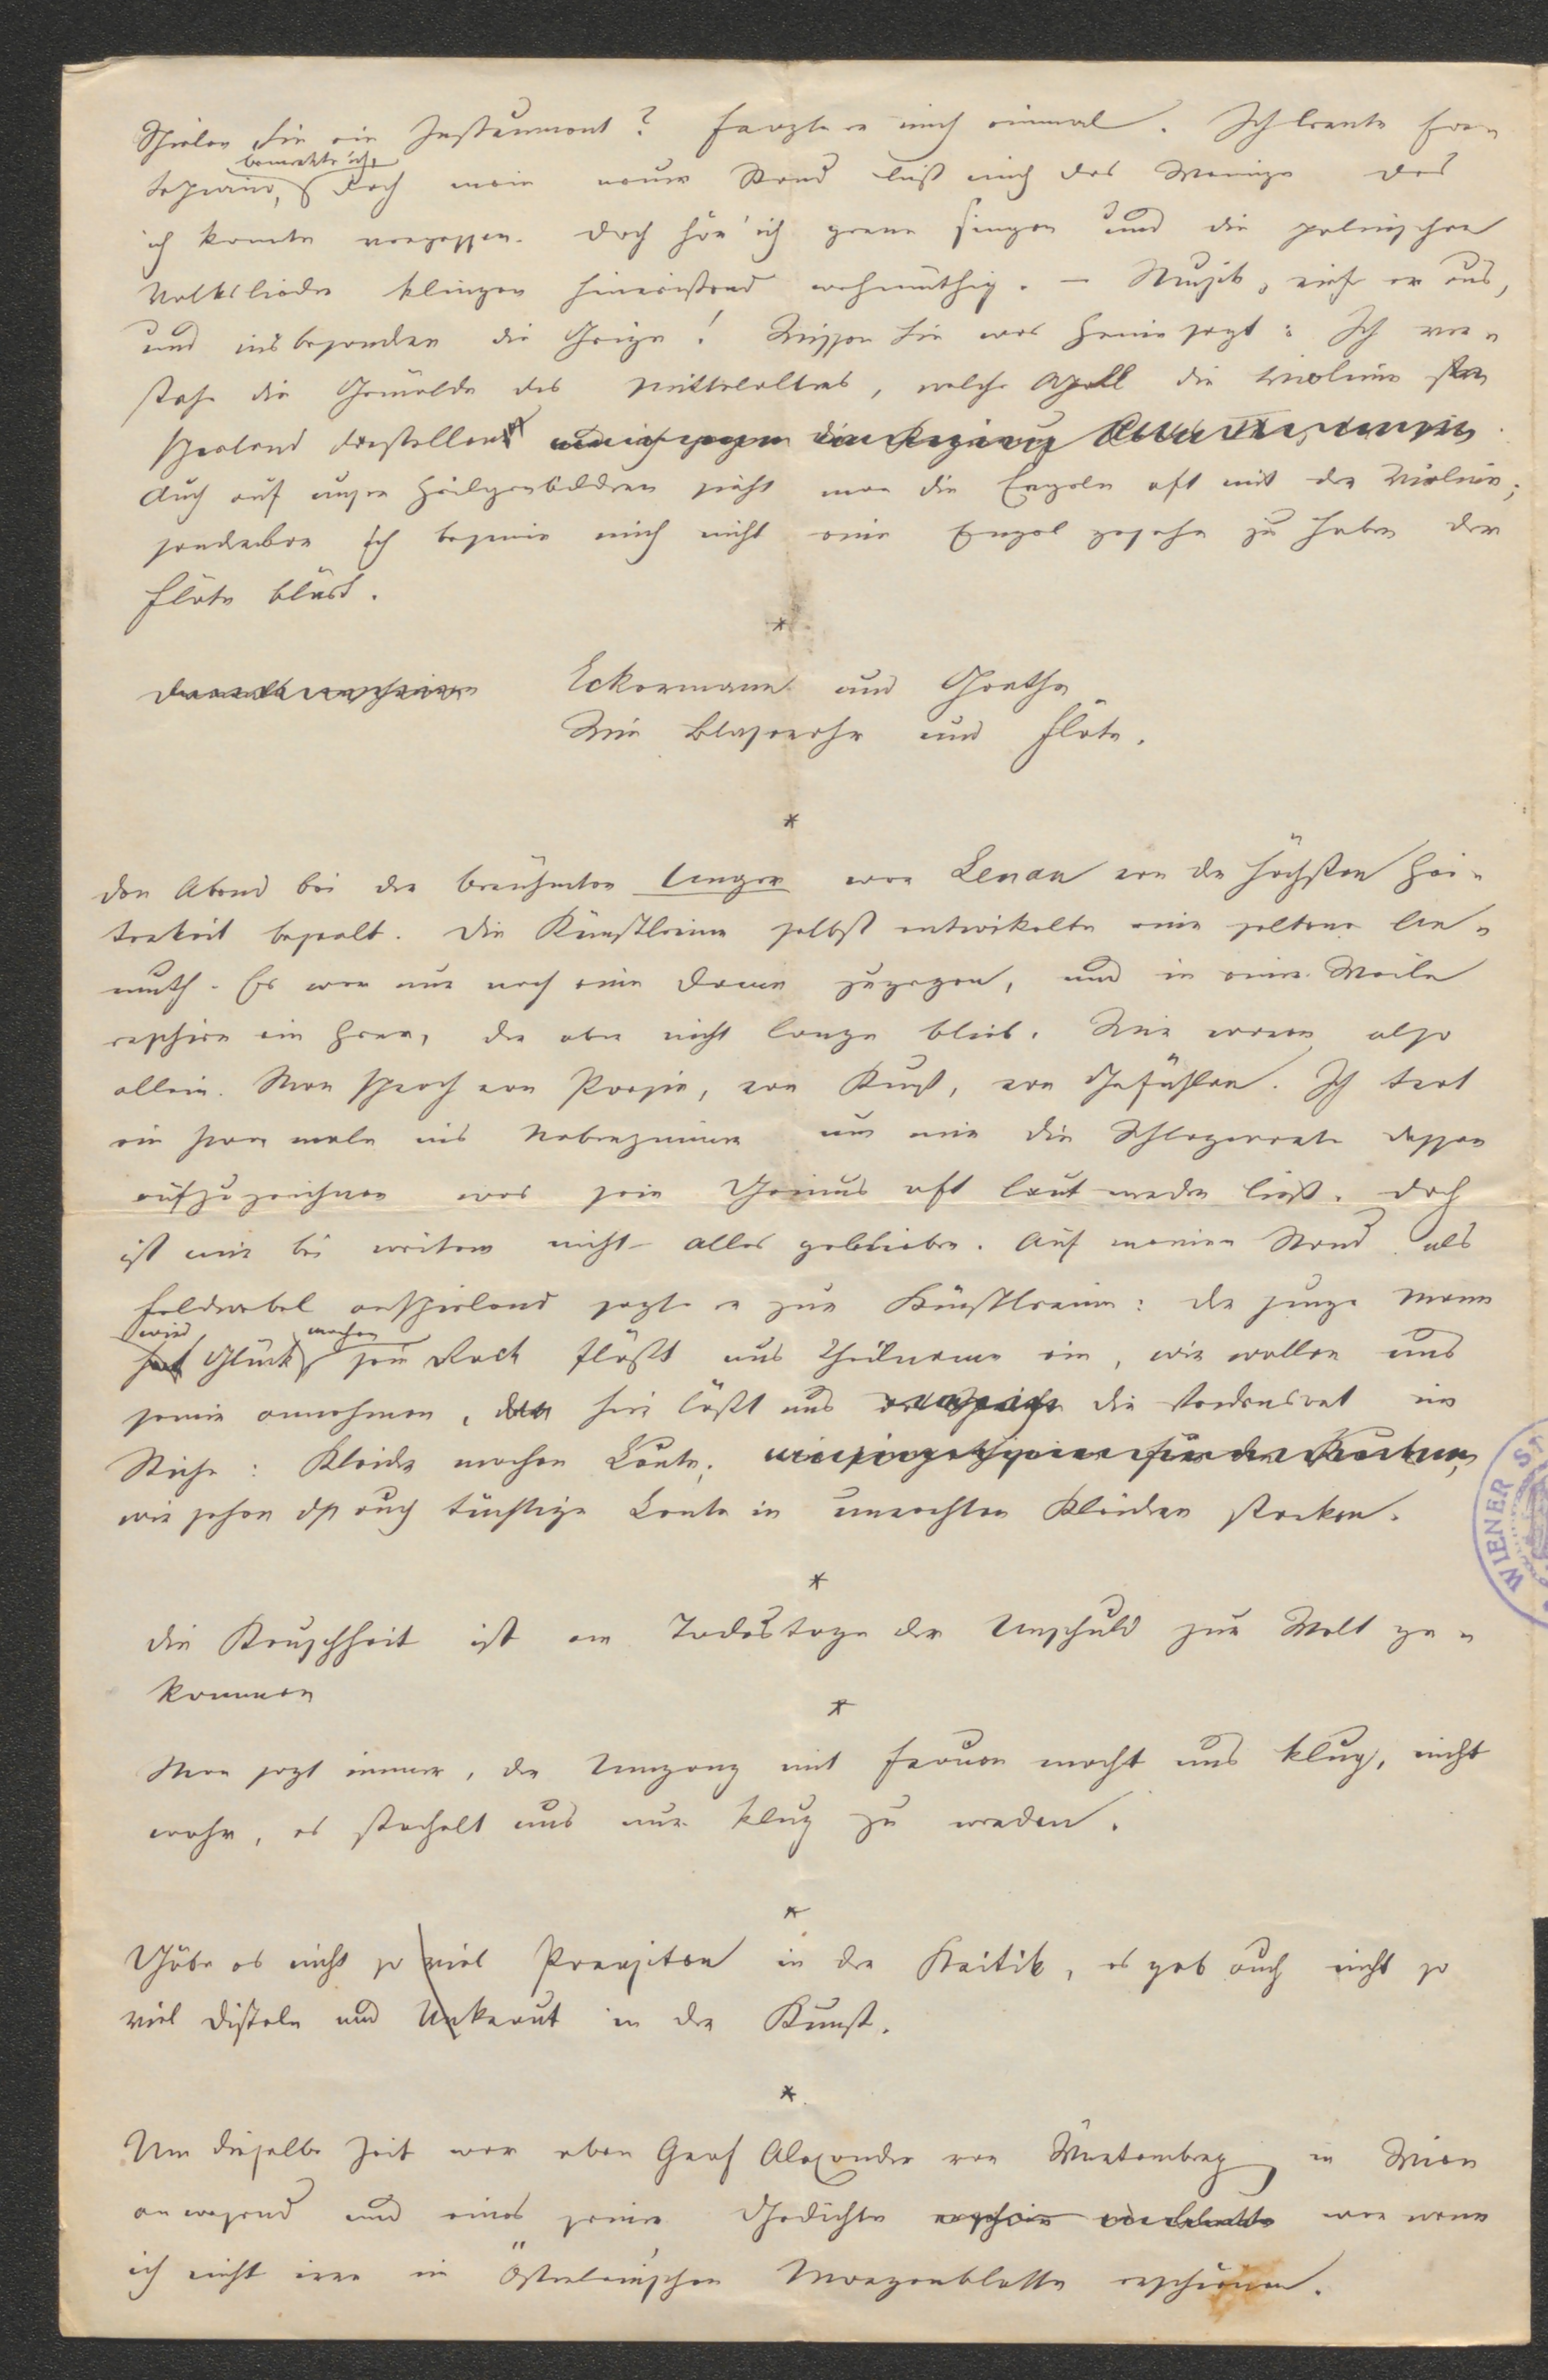 Spielen Sie ein Instrument? fragte er mich einmal. Ich lernte Fran
bemerkte ich
doch mein neuer Stand ließ mich das Wenige das
ich konnte vergessen. Doch hör' ich gerne singen und die polnischen
Volkslieder klingen hinreißend wehmüthig. – Musik, rief er aus,
und insbesondere die Geige! Wissen Sie was Heine sagt: Ich ver-
stehe die Gemälde des Mittelalters, welche Apoll die Violine
spielend darstellen
Auch auf unsern Heilgenbildern sieht man die Engeln oft mit der Violine;
sonderbar ich besinne mich nicht einen Engel gesehn zu haben der
Flöte bläst.
*
Eckermann und Goethe
Wie Blasrohr und Flöte.
*
Den Abend bei der berühmten Unger war Lenau von der höchsten Hei-
terkeit beseelt. Die Künstlerinn selbst entwikelte eine seltene An-
muth. Es war nur noch eine Dame zugegen, und in einer Weile
erschien ein Herr, der aber nicht lange blieb. Wir waren also
allein. Man sprach von Poesie, von Kunst, von Gefühlen. Ich trat
ein paar male ins Nebenzimmer um mir die Schlagworte dessen
aufzuzeichnen was sein Genius oft laut werden ließ. Doch
ist mir bei weitem nicht alles geblieben. Auf meinen Stand als
Feldwebel anspielend sagte er zur Künstlerinn: der junge Mann
wird machen
hat Glück sein Rock flößt uns Theilname ein, wir wollen uns
seiner annehmen, hier läßt uns die Redensart im
Stiche: Kleider machen Leute;
wir sehen daß auch tüchtige Leute in unrechten Kleidern stecken.
*
Die Keuschheit ist am Todestage der Unschuld zur Welt ge-
kommen
*
Man sagt immer, der Umgang mit Frauen macht uns klug, nicht
wahr, es stachelt uns nur klug zu werden.
*
Gäbe es nicht so viel Prersiten in der Kritik, es gäb auch nicht so
viel Disteln und Unkraut in der Kunst.
*
Um dieselbe Zeit war eben Graf Alexander von Würtemberg in Wien
anwesend und eines seiner Gedichte erschien war wenn
ich nicht irre im Österleinischen Morgenblatte erschienen.
WIENER ST